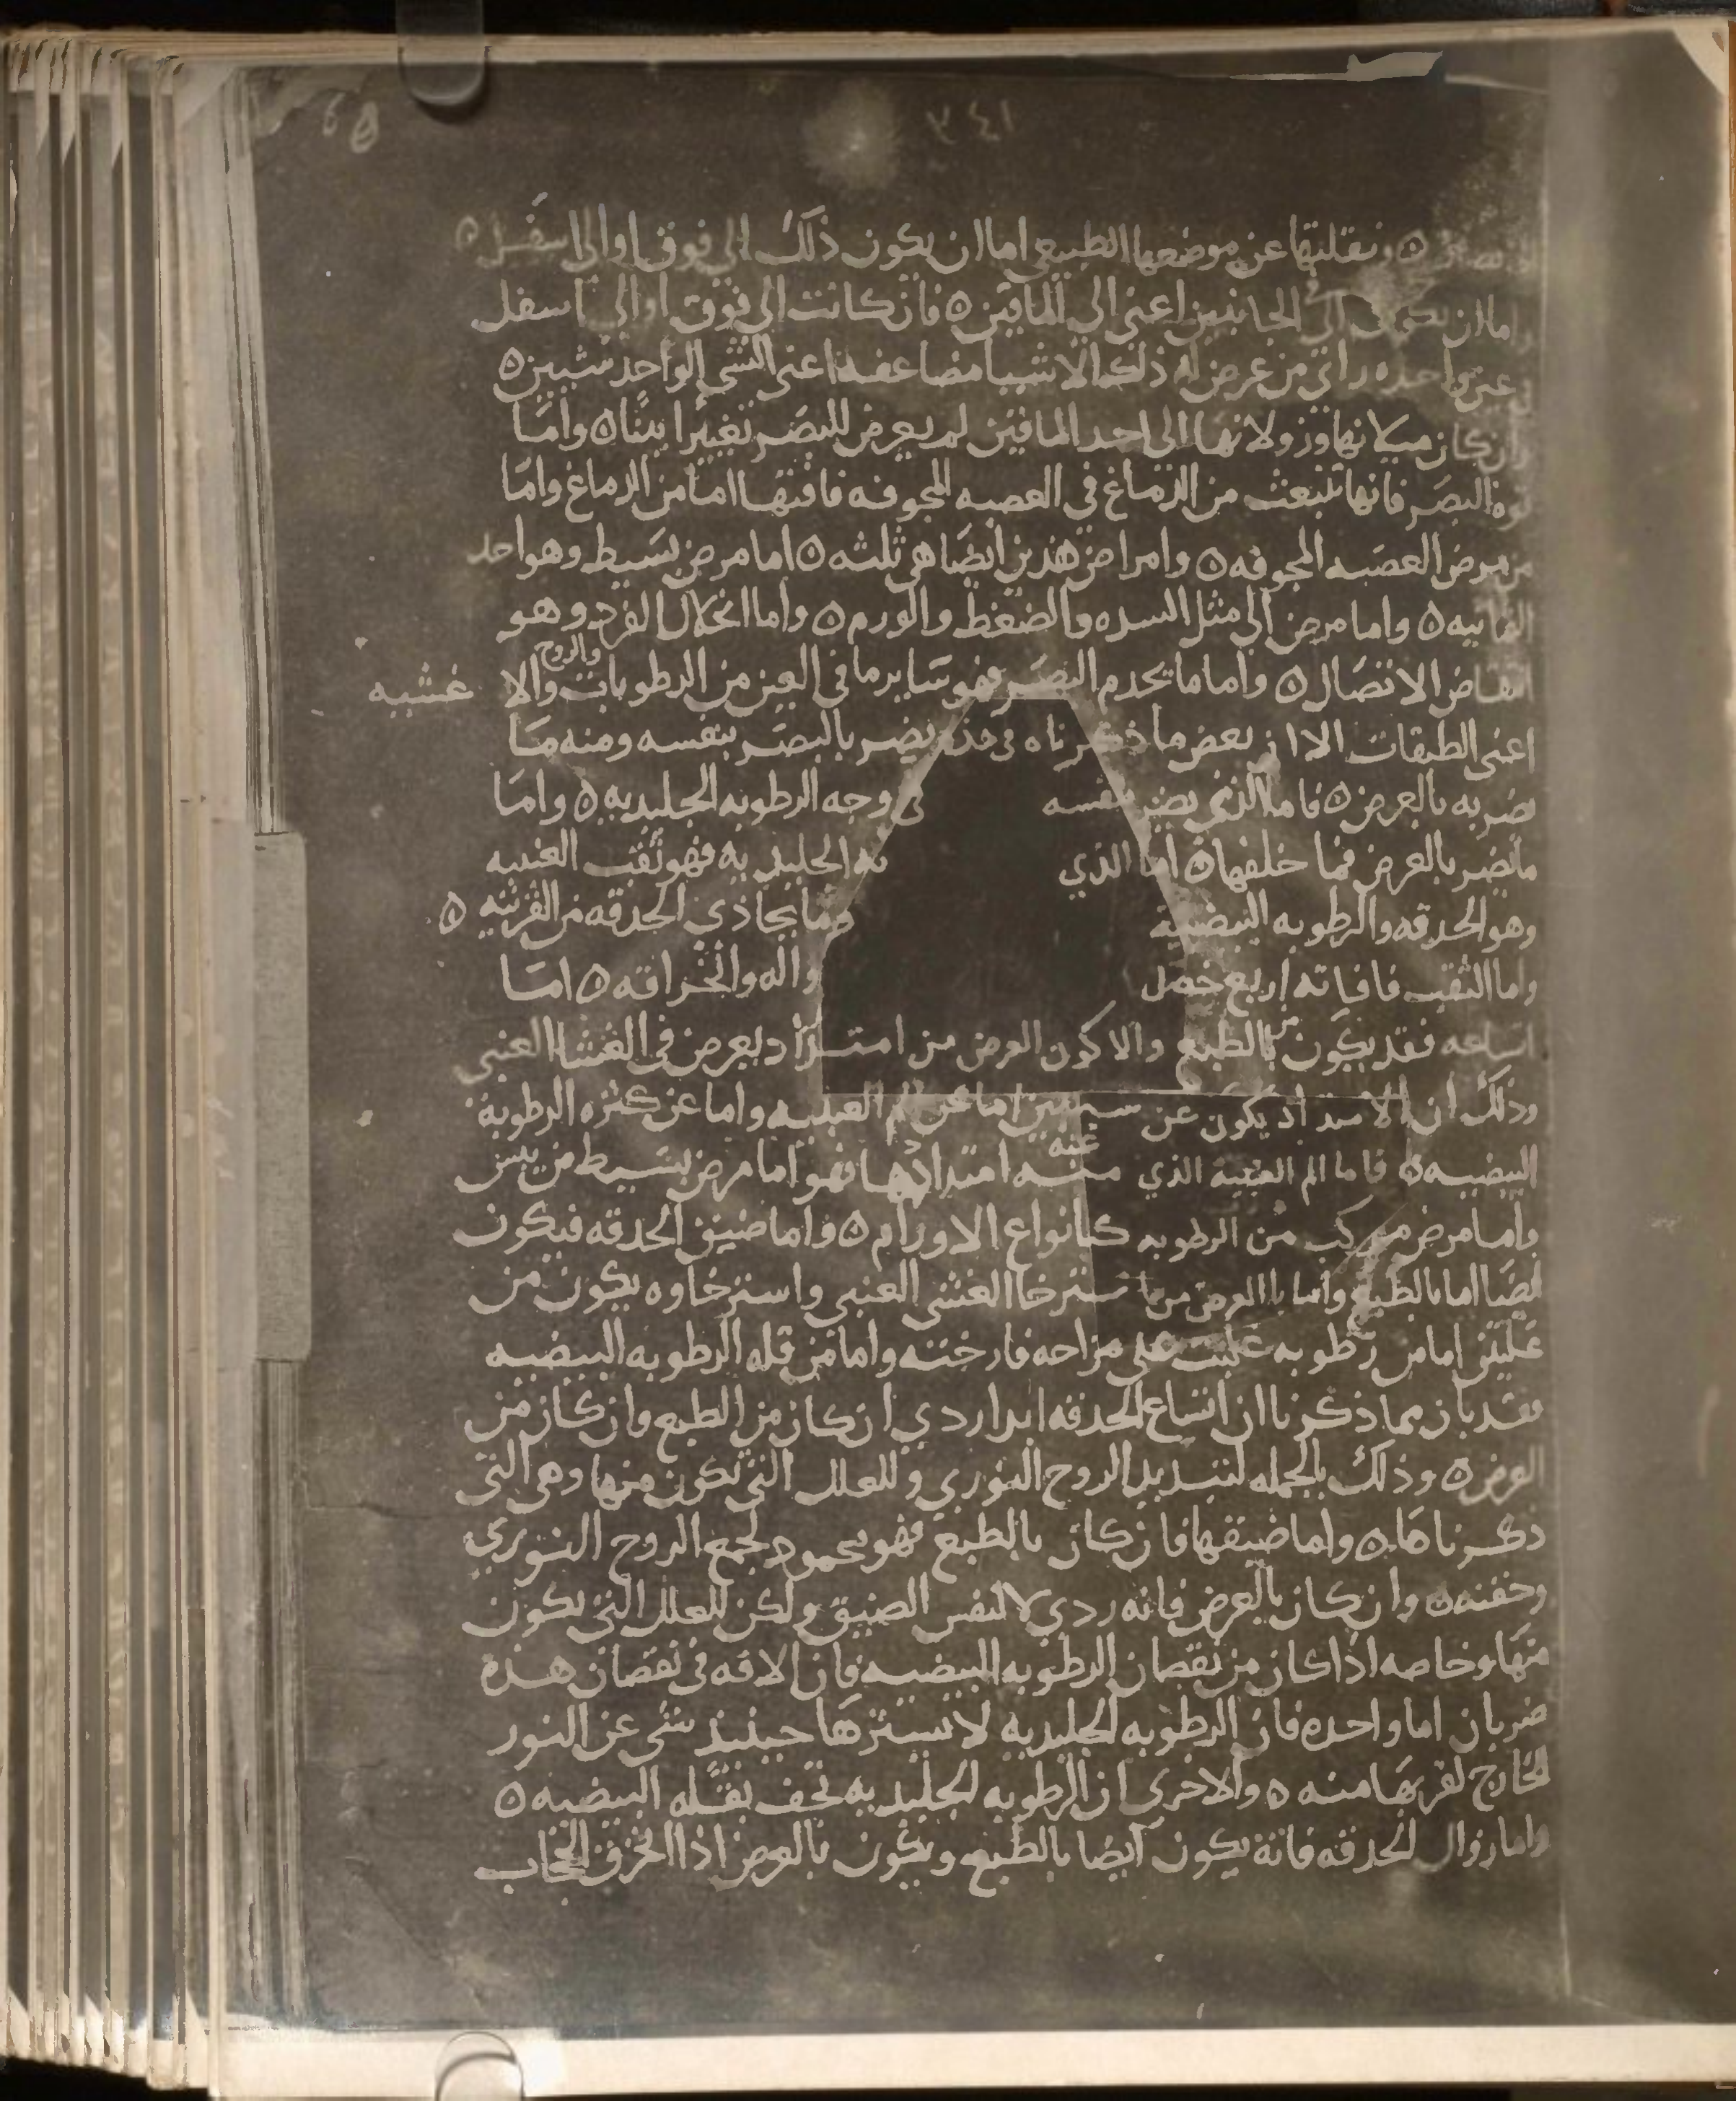 ٣٤١
65
ونقلتها عن موضعها الطبيعي اما ان يكون ذلك الى فوق او الى اسفل ٥
واما ان يكون الى الجانبين اعنى الى الماقين ٥ فان كانت الى فوق او الى اسفل
في عين واحده راى من عرض له ذلك الاشيا مضاعفه اعنى الشى الواحد شيين ٥
وان كان ميلانها وزولانها الى احد الماقين لم يعرض للبصر تغييرا بينا ٥ واما
قوة البصر فانها تنبعث من الدماغ في العصبه المجوفه فافتها اما من الدماغ واما
من مرض العصبه المجوفه ٥ وامراض هذين ايضا هى ثلثه ٥ اما مرض بسيط وهو احد
الثمانيه ٥ واما مرض الى مثل السده والضغط والورم ٥ واما انحلال الفرد وهو
انتقاض الاتصال ٥ واما ما يخدم البصر فهو ساير ما فى العين من الرطوبات والا غشيه
والروح
اعنى الطبقات الا ان بعض ما ذكرناه يضر بالبصر بنفسه ومنه ما
يضر به بالعرض ٥ فاما الذي يضر بنفسه فى وجه الرطوبه الجليديه ٥ واما
ما يضر بالعرض فما خلفها ٥ اما الذي الجليديه فهو ثقب العنبيه
وهو الحدقه والرطوبه البيضيه وما يحاذى الحدقه من القرنيه ٥
واما الثقب فافاته اربع خصل واله وانخراقه ٥ اما
اتساعه فقد يكون بالطبع والا كون العرض من امتداد يعرض فى الغشا العنبى
وذلك ان الامتداد يكون عن سببين اما عن الم العنبيه واما عن كثره الرطوبة
البيضيه ٥ فاما الم العنبية الذي عنه امتدادها فهو اما مرض بسيط من يبس
واما مرض مركب من الرطوبه كانواع الاورام ٥ واما ضيق الحدقه فيكون
ايضا اما بالطبع واما بالعرض من استرخا الغشى العنبى واسترخاوه يكون من
علتين اما من رطوبه غلبت على مزاجه فارخته واما من قله الرطوبه البيضيه
فقد بان مما ذكرنا ان اتساع الحدقه ابدا ردي ان كان من الطبع وان كان من
العرض ٥ وذلك بالجمله لتبديد الروح النوري وللعلل التى تكون منها وهى التى
ذكرناها ٥ واما ضيقها فان كان بالطبع فهو محمود لجمع الروح النوري
وحفنه ٥ وان كان بالعرض فانه ردي لا لنفس الضيق ولكن للعلل التى يكون
منها وخاصه اذا كان من نقصان الرطوبه البيضيه فان الافه فى نقصان هذه
ضربان اما واحده فان الرطوبه الجليديه لا يسترها حينئذ شى عن النور
الخارج لقربها منه ٥ والاخرى ان الرطوبه الجليديه تجف بقله البيضيه ٥
واما زوال الحدقه فانه يكون ايضا بالطبع ويكون بالعرض اذا انخرق الحجاب